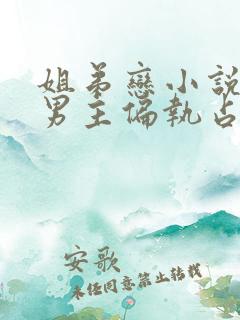 姐弟戀小說
男主偏執占
安歌
未经同意禁止转载